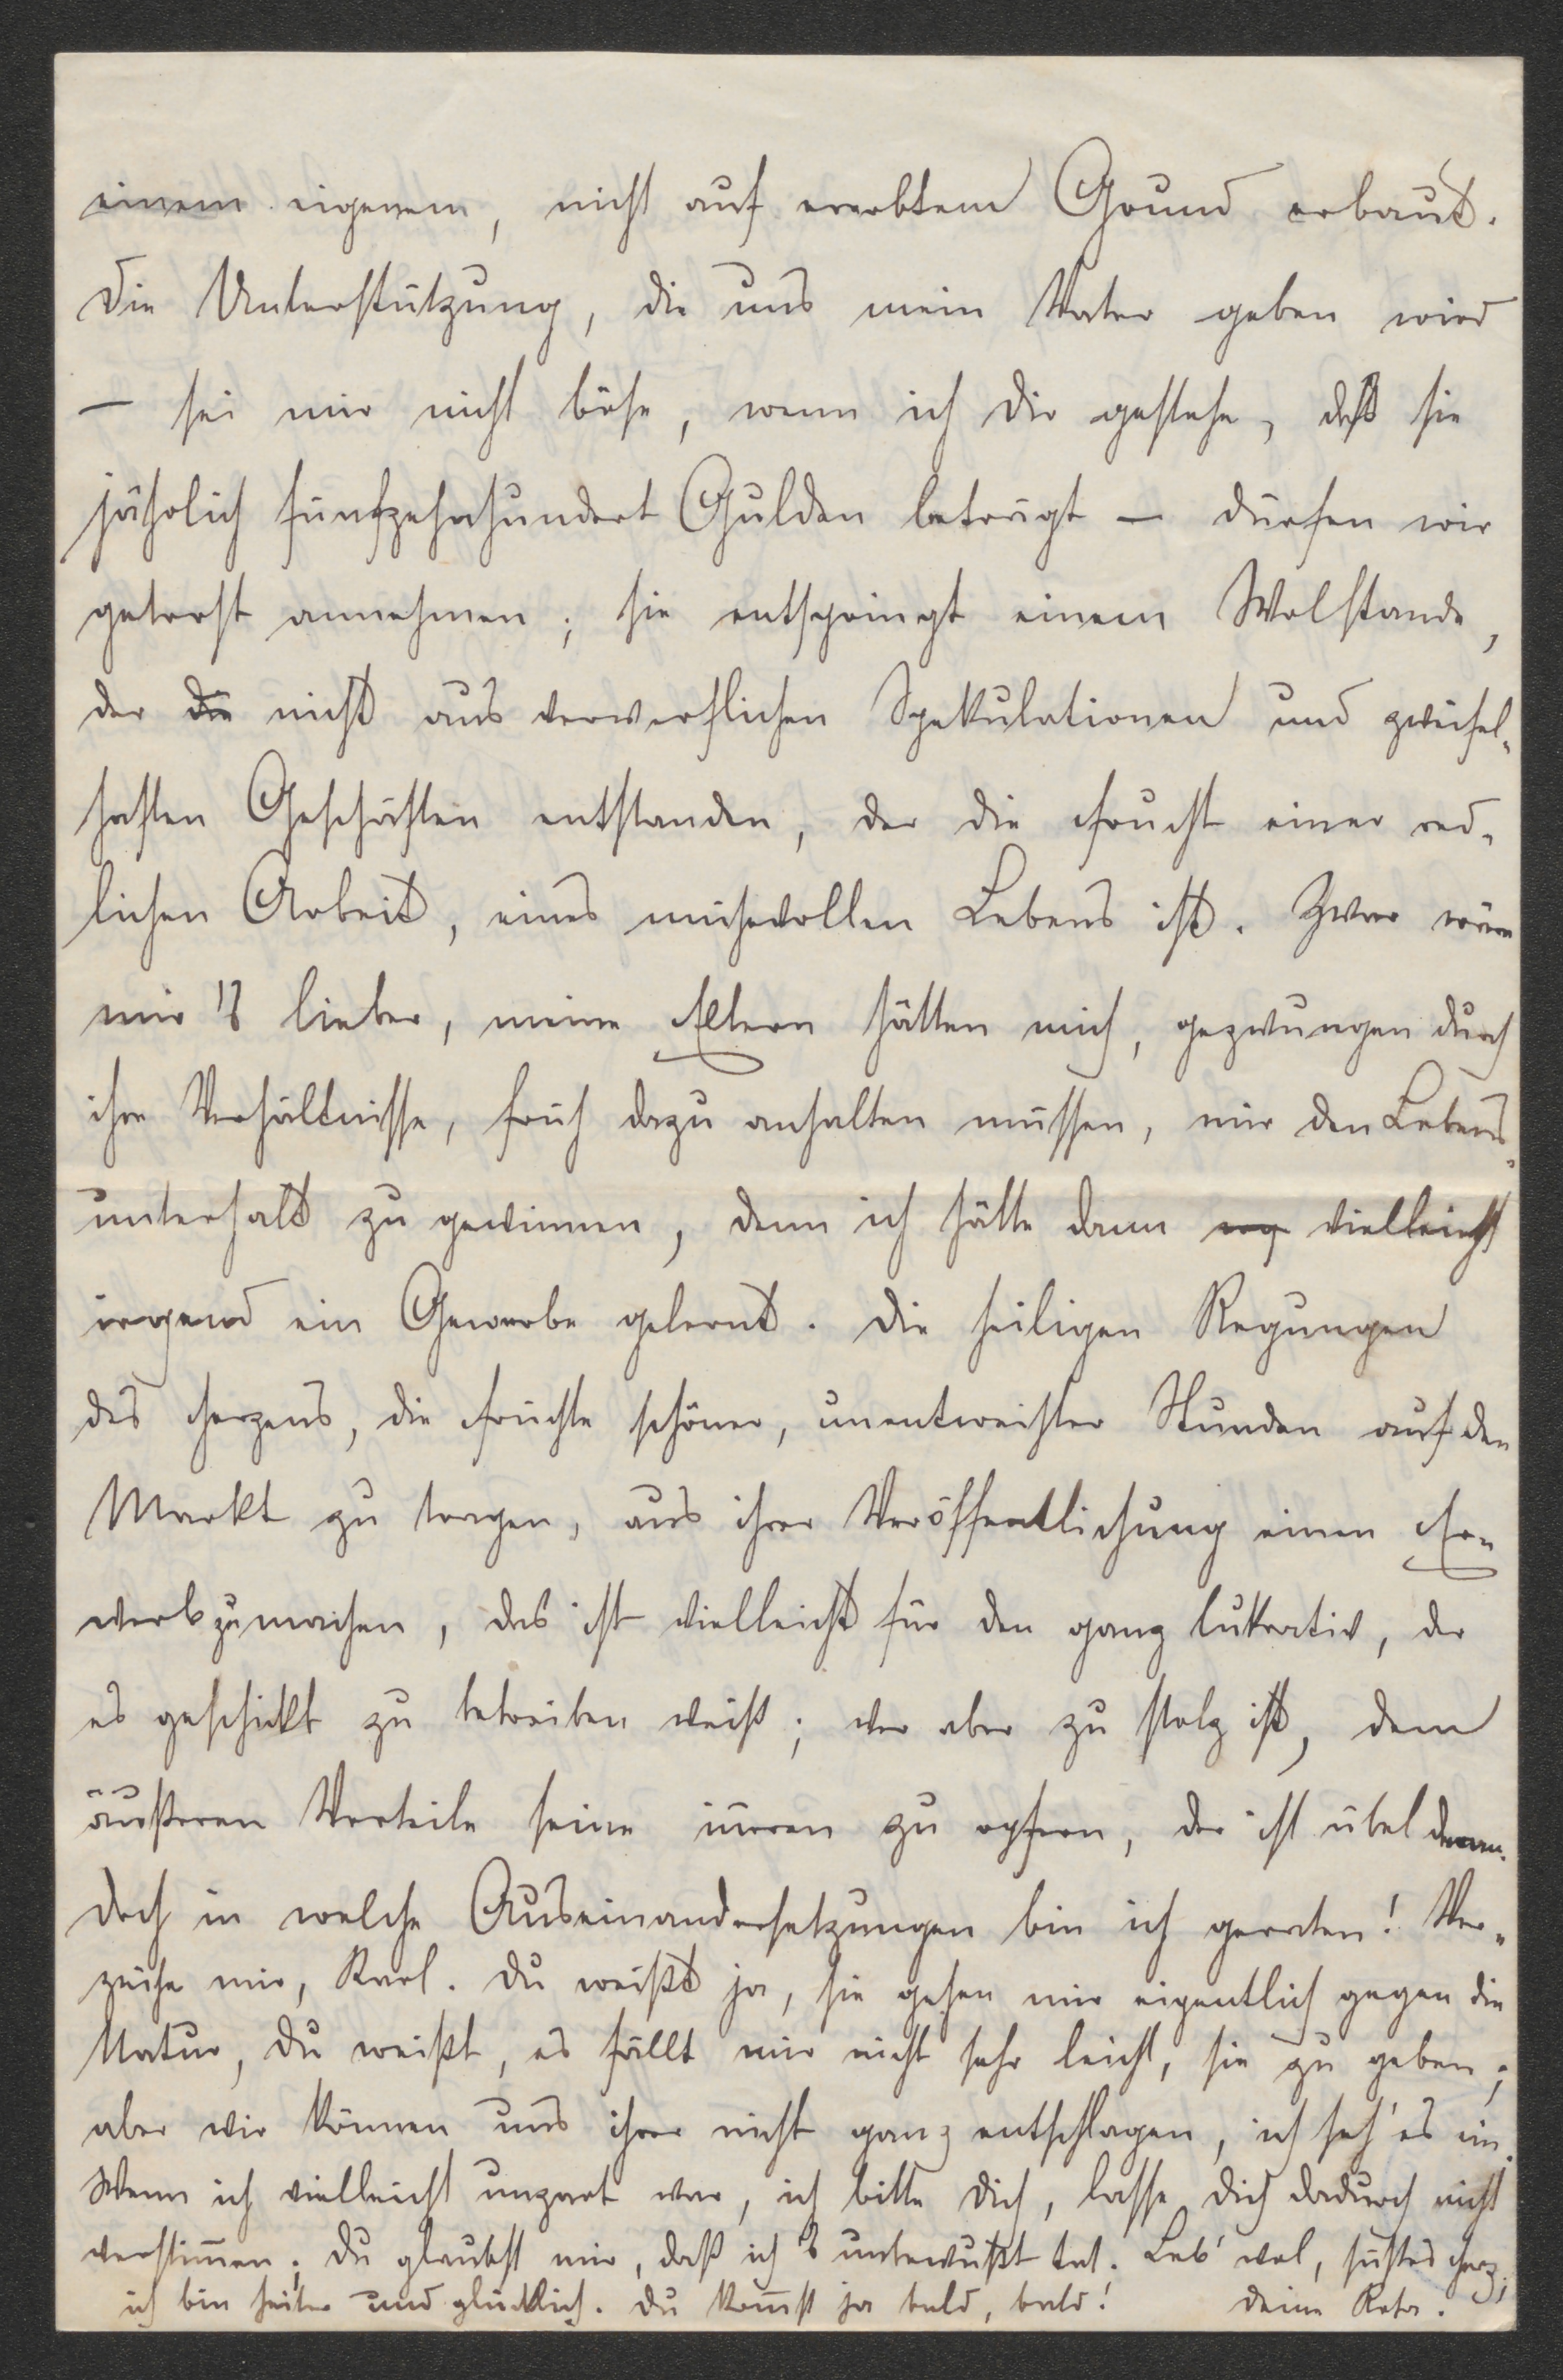 einem eigenem, nicht auf ererbtem Grund erbaut.
Die Unterstützung, die uns mein Vater geben wird
— sei mir nicht böse, wenn ich Dir gestehe, daß sie
jährlich fünfzehnhundert Gulden beträgt — dürfen wir
getrost annehmen; sie entspringt einem Wolstande,
der die nicht aus verwerflichen Spekulationen und zweifel-
haften Geschäften entstanden, der die Frucht einer red-
lichen Arbeit, eines mühevollen Lebens ist. Zwar wäre
mir's lieber, meine Eltern hätten mich, gezwungen durch
ihre Verhältnisse, früh dazu anhalten müssen, mir den Lebens-
unterhalt zu gewinnen, denn ich hätte dann vielleicht
irgend ein Gewerbe gelernt. Die heiligen Regungen
des Herzens, die Früchte schöner, unentweihter Stunden auf den
Markt zu tragen, aus ihrer Veröffentlichung einen Er-
werb zu machen, das ist vielleicht für den ganz lukrativ, der
es geschickt zu betreiben weiß; wer aber zu stolz ist, dem
äußeren Vorteile seine inneren zu opfern, der ist übel daran.
Doch in welche Auseinandersetzungen bin ich geraten! Ver-
zeihe mir, Karl. Du weißt ja, sie gehen mir eigentlich gegen die
Natur, Du weißt, es fällt mir nicht sehr leicht, sie zu geben;
aber wir können uns ihrer nicht ganz entschlagen, ich seh' es ein.
Wenn ich vielleicht unzart war, ich bitte Dich, lasse Dich dadurch nicht
verstimmen; Du glaubst mir, daß ich's unbewußt tat. Leb' wol, süßes Herz;
ich bin heiter und glücklich. Du kommst ja bald, bald! Deine Rosa.